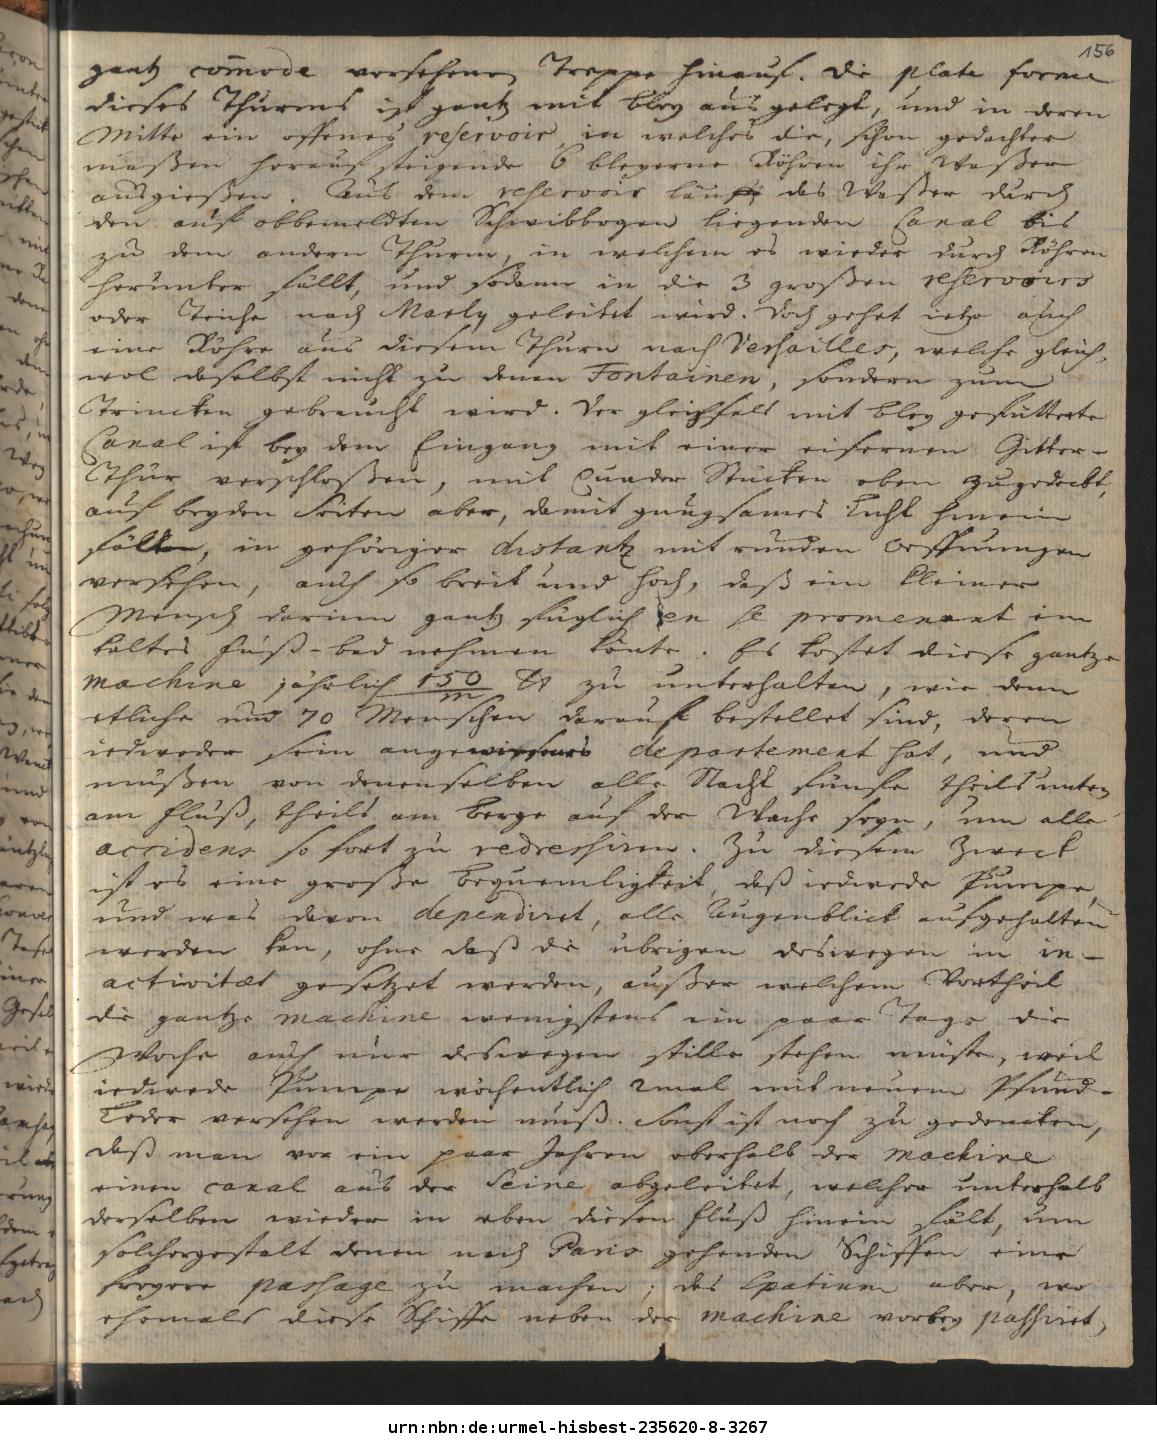 156
gantz com̄ode versehenen Treppe hinauf. Die plate forme
dieses Thurms ist gantz mit bley ausgelegt, und in deren
Mitte ein offenes reservoir, in welches die, schon gedachter
maßen herauf steigende 6 bleyerne Röhren ihr Waßer
ausgießen. Aus dem reservoir läufft das Waßer durch
den auf obbemeldten Schwibbogen liegenden Canal bis
zu dem andern Thurm, in welchem es wieder durch Röhren
herunter fällt, und sodann in die 3 großen reservoirs
oder Teiche nach Marly geleitet wird. Doch gehet ietzo auch
eine Röhre aus diesem Thurn nach Versailles, welche gleich-
wol daselbst nicht zu denen Fontainen, sondern zum
Trincken gebraucht wird. Der gleichfals mit bley gefütterte
Canal ist bey dem Eingang mit einer eisernen Gitter-
Thür verschloßen, mit Quader Stücken oben zugedeckt,
auf beyden Seiten aber, damit gnugsames Licht hinein
falle, in gehöriger distantz mit runden Oeffnungen
versehen, auch so breit und hoch, daß ein kleiner
Mensch darinn gantz füglich en se promenant ein
kaltes Fuß-bad nehmen könte. Es kostet diese gantze
machine jährlich 150/m ₶ zu unterhalten, wie denn
etliche und 70 Menschen darauf bestellet sind, deren
iedweder sein angewiesenes departement hat, und
müßen von denenselben alle Nacht fünfe theils unten
am Fluß, theils am Berge auf der Wache seyn, um alle
accidens so fort zu redressiren. Zu diesem Zweck
ist es eine große Bequemligkeit, daß iedwede Pumpe,
und was davon dependiret, alle Augenblick aufgehalten
werden kan, ohne daß die übrigen deswegen in in-
activitæt gesetzet werden, außer welchem Vortheil
die gantze machine wenigstens ein paar Tage die
Woche auch nur deswegen stille stehen müste, weil
iedwede Pumpe wöchentlich 2mal mit neuem Pfund-
Leder versehen werden muß. Sonst ist noch zu gedencken,
daß man vor ein paar Jahren oberhalb der machine
einen canal aus der Seine abgeleitet, welcher unterhalb
derselben wieder in eben diesen Fluß hinein fält, um
solchergestalt denen nach Paris gehenden Schiffen eine
freyere passage zu machen; das Spatium aber, wo
ehemals diese Schiffe neben der machine vorbey passiret,
urn:nbn:de:urmel-hisbest-235620-8-3267